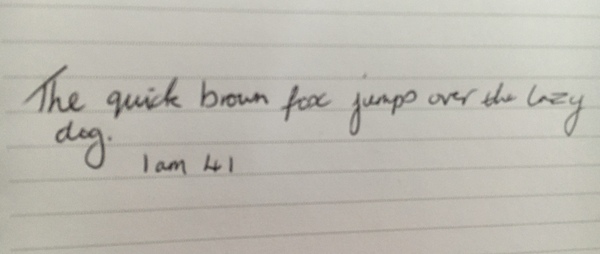 The quick brown fox jumps over the lazy
dog.
I am 41